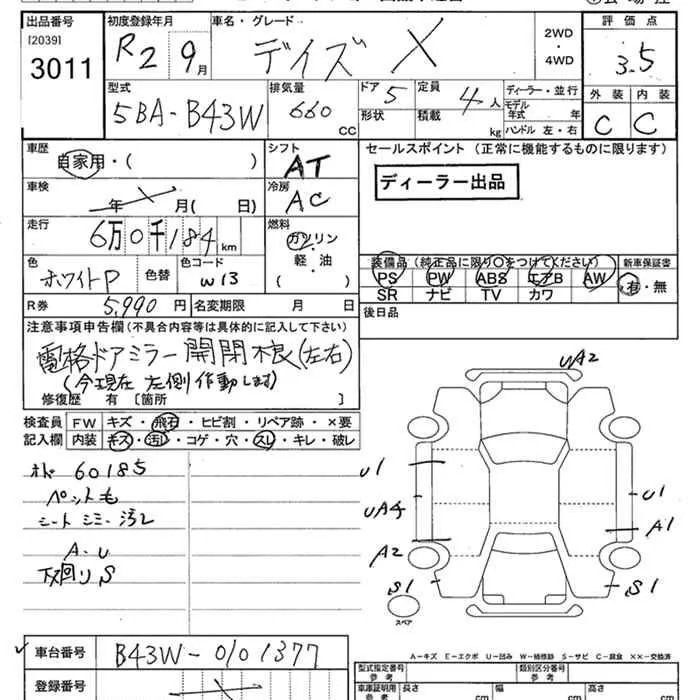 出品番号 初度登録年月 車名・グレード 2WD・4WD 評価点
[2039]
3011 R2 9月 デイズ X 3.5
型式 排気量 ドア 定員 ディーラー・並行 外装 内装
5BA-B43W 660 CC 5 4人 モデル年式 年 C C
形状 積載 kg ハンドル 左・右
車歴 シフト セールスポイント (正常に機能するものに限ります)
自家用・( ) AT
車検 冷房 ディーラー出品
年 月( 日) AC
走行 燃料
6万0千184km ガソリン
軽・油
( )
色 色替 色コード 装備品 (純正品に限り○をつけてください) 新車保証書
ホワイトP W13 PS PW ABS エアB AW 有・無
SR ナビ TV カワ
R券 5,990円 名変期限 月 日 後日品
注意事項申告欄(不具合内容等は具体的に記入して下さい)
電格ドアミラー開閉不良(左右)
(今現在 左側作動します)
修復歴 有 〔箇所 〕
検査員記入欄 FW キズ・飛石・ヒビ割・リペア跡・×要
内装 キズ・汚レ・コゲ・穴・スレ・キレ・破レ
オド 60185
ペット毛
シートシミ・汚レ
A・U
下回りS
UA2
U1 U1
UA4 A1
A2
S1 S1
スペア
A-キズ E-エクボ U-凹み W-補修跡 S-サビ C-腐食 ××-交換済
車台番号 B43W-0101377
登録番号
型式指定番号 参考 類別区分番号 参考
車庫証明用 参考 長さ cm 幅 cm 高さ cm